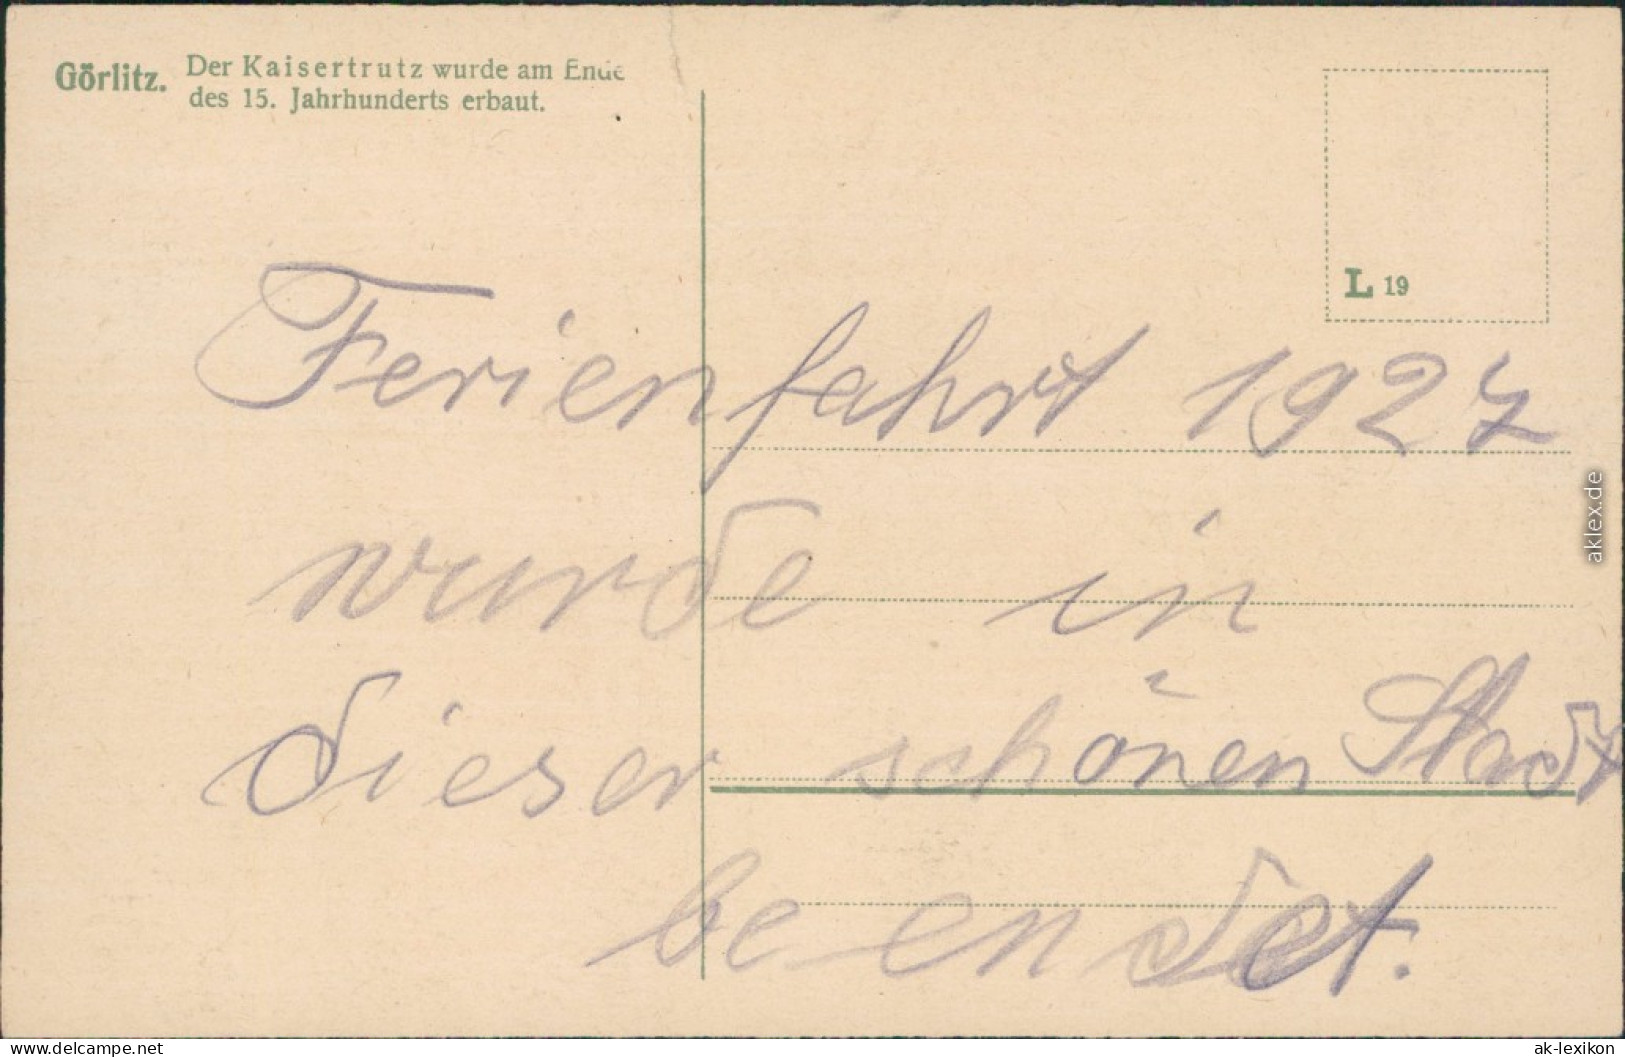 Görlitz. Der Kaisertrutz wurde am Ende
des 15. Jahrhunderts erbaut.
L 19
Ferienfahrt 1927
wurde in
dieser schönen Stadt
beendet.
aklex.de
www.delcampe.net
ak-lexikon